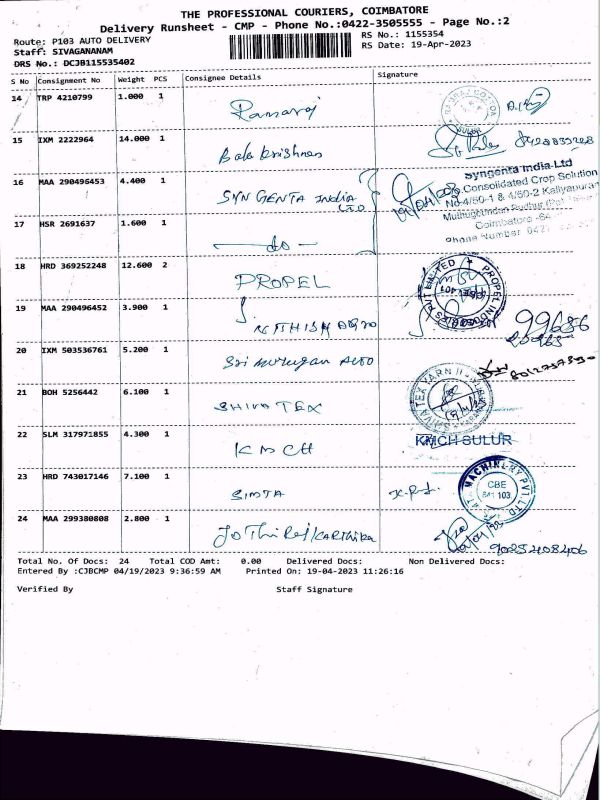 THE PROFESSIONAL COURIERS, COIMBATORE
Delivery Runsheet - CMP - Phone No.:0422-3505555 - Page No.:2
Route: P103 AUTO DELIVERY RS No.: 1155354
Staff: SIVAGANANAM RS Date: 19-Apr-2023
DRS No.: DCJB115535402
S No Consignment No Weight PCS Consignee Details Signature
14 TRP 4210799 1.000 1 Ramaraj
SULUR
15 IXM 2222964 14.000 1 Bala Krishnan
16 MAA 290496453 4.400 1 SYNGENTA INDIA LTD
Syngenta India Ltd
Consolidated Crop Solution
No-4/60-1 & 4/60-2 Kaliyapuram
Coimbatore -64
Phone Number 0422
17 HSR 2691637 1.600 1 do
18 HRD 369252248 12.600 2 PROPEL
PROPEL INDUSTRIES PVT LIMITED
19 MAA 290496452 3.900 1
99686
20 IXM 503536761 5.200 1 Sri Murugan Auto
21 BOH 5256442 6.100 1 SHIVA TEX
SHIVA TEXYARN
22 SLM 317971855 4.300 1 KMCH
KMCH SULUR
23 HRD 743017146 7.100 1 SIMTA
MACHINERY PVT. LTD
CBE
641 103
24 MAA 299380808 2.800 1 JOTHIRAJ/KARTHIKA
9025408406
Total No. Of Docs: 24 Total COD Amt: 0.00 Delivered Docs: Non Delivered Docs:
Entered By :CJBCMP 04/19/2023 9:36:59 AM Printed On: 19-04-2023 11:26:16
Verified By Staff Signature